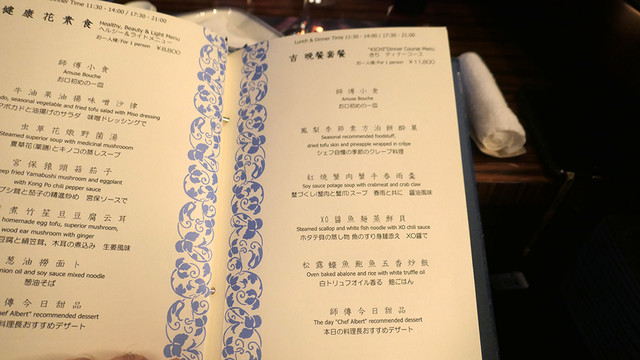 Time 11:30 - 14:00 / 17:30 - 21:00
健康花素食
Healthy, Beauty & Light Menu
ヘルシー&ライトメニュー
お一人様/For 1 person ￥8,800
師傅小食
Amuse Bouche
お口初めの一皿
牛油果油揚味噌沙律
seasonal vegetable and fried tofu salad with Miso dressing
アボカドと油揚げのサラダ 味噌ドレッシングで
虫草花燉野菌湯
Steamed superior soup with medicinal mushrooom
夏草花(薬膳)とキノコの蒸しスープ
宮保猴頭菇茄子
fried Yamabushi mushroom and eggplant
with Kong Po chili pepper sauce
茸と茄子の精進炒め 宮保ソースで
煮竹笙苴豆腐云耳
homemade egg tofu, superior mushroom,
wood ear mushroom with ginger
豆腐と絹笠茸、木耳の煮込み 生姜風味
葱油撈面卜
onion oil and soy sauce mixed noodle
葱油そば
傅今日甜品
"Chef Albert" recommended dessert
料理長おすすめデザート
Lunch & Dinner Time 11:30 - 14:00 / 17:30 - 21:00
吉 晩餐套餐
"KICHI"Dinner Course Menu
きち ディナーコース
お一人様/For 1 person ￥11,800
師傅小食
Amuse Bouche
お口初めの一皿
鳳梨季節素方泊餅酥菓
Seasonal recommended foodstuff,
dried tofu skin and pineapple wrapped in crêpe
シェフ自慢の季節のクレープ料理
紅燒蟹肉蟹手春雨羹
Soy sauce potage soup with crabmeat and crab claw
蟹づくし(蟹肉と蟹爪)スープ 春雨と共に 醤油風味
XO醬魚麺蒸鮮貝
Steamed scallop and white fish noodle with XO chili sauce
ホタテ貝の蒸し物 魚のすり身麺添え XO醤で
松露鰻魚鮑魚五香炒飯
Oven baked abalone and rice with white truffle oil
白トリュフオイル香る 鮑ごはん
師傅今日甜品
The day "Chef Albert" recommended dessert
本日の料理長おすすめデザート